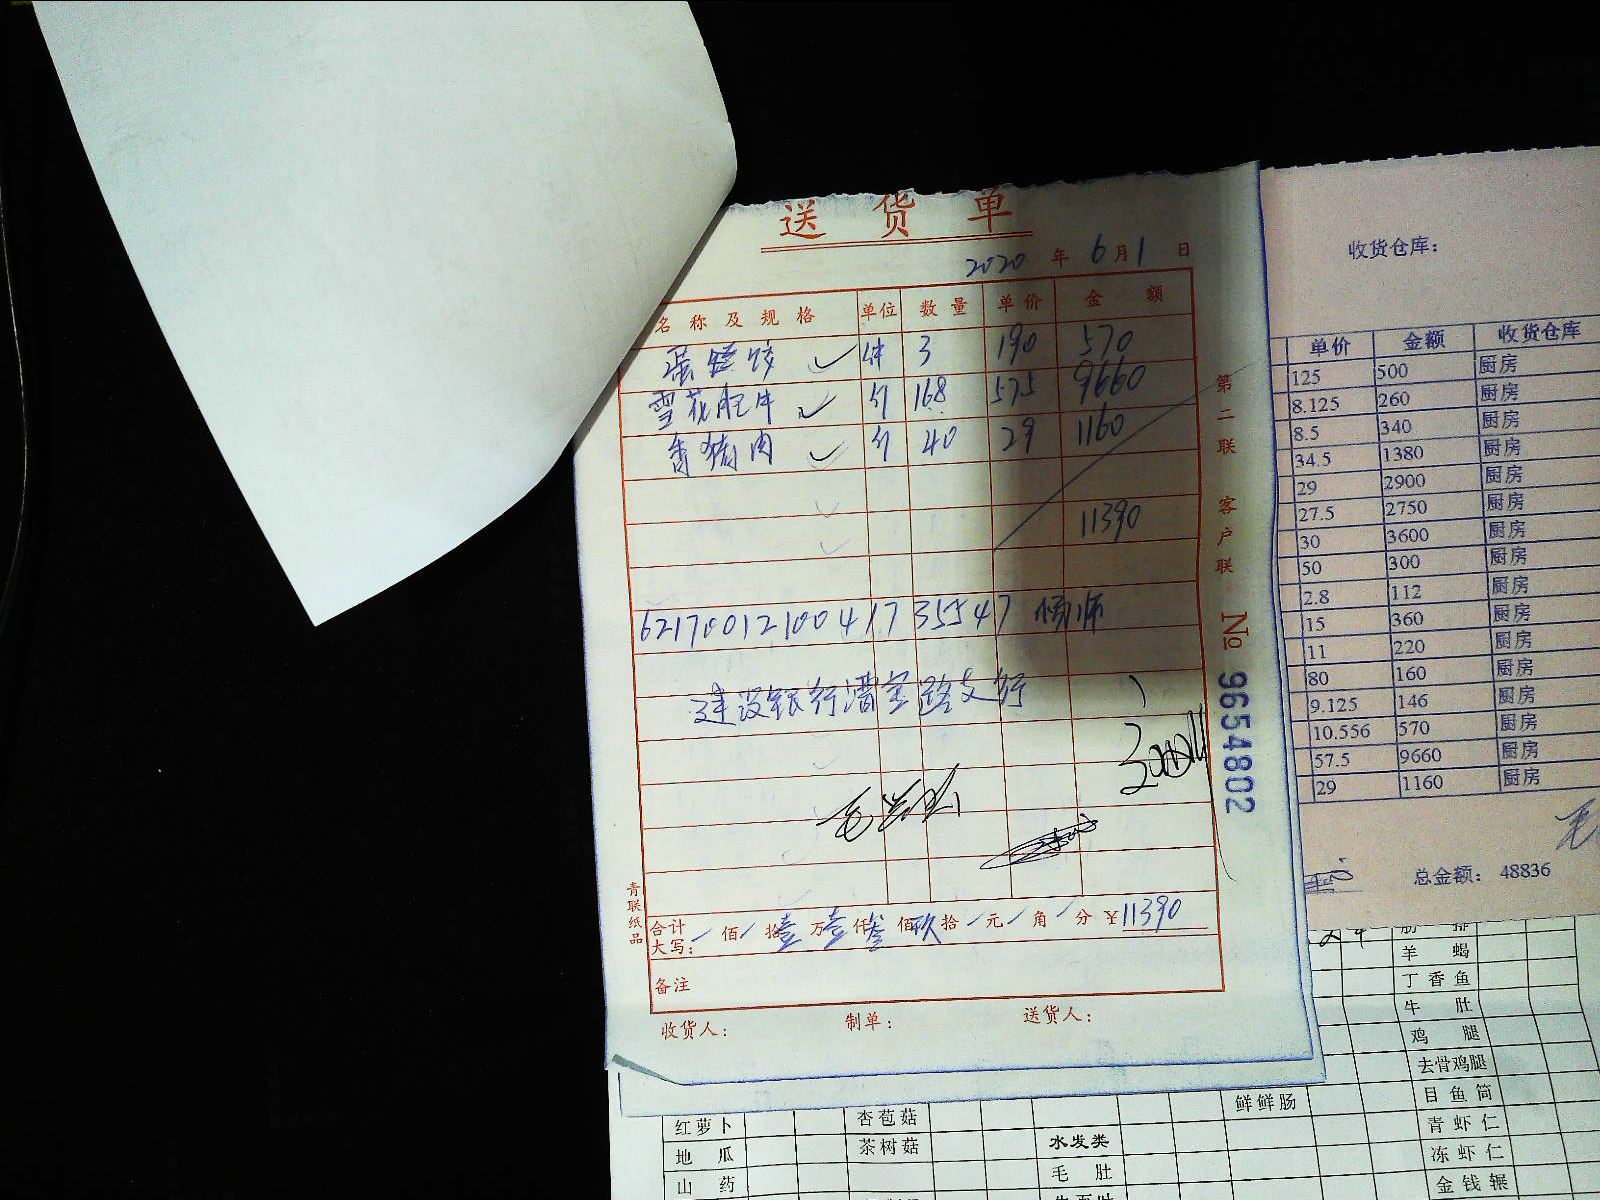 送 货 单
2020 年 6 月 1 日
名 称 及 规 格 单位 数 量 单 价 金 额
蛋 饺 件 3 190 570
雪花肥牛 斤 168 575 9660
香猪肉 斤 40 29 1160
11390
6217001210041735547
建设银行漕宝路支行
合计
大写: 佰 拾壹 万壹 仟叁 佰玖 拾 元 角 分 ¥11390
备注
收货人: 制单: 送货人:
青联纸品
第二联 客户联
№ 9654802
收货仓库:
单价 金额 收货仓库
125 500 厨房
8.125 260 厨房
8.5 340 厨房
34.5 1380 厨房
29 2900 厨房
27.5 2750 厨房
30 3600 厨房
50 300 厨房
2.8 112 厨房
15 360 厨房
11 220 厨房
80 160 厨房
9.125 146 厨房
10.556 570 厨房
57.5 9660 厨房
29 1160 厨房
总金额: 48836
羊 蝎
丁香鱼
牛 肚
鸡 腿
去骨鸡腿
鲜鲜肠 目鱼筒
红萝卜 杏苞菇 青虾仁
地 瓜 茶树菇 水发类 冻虾仁
山 药 毛 肚 金钱辗